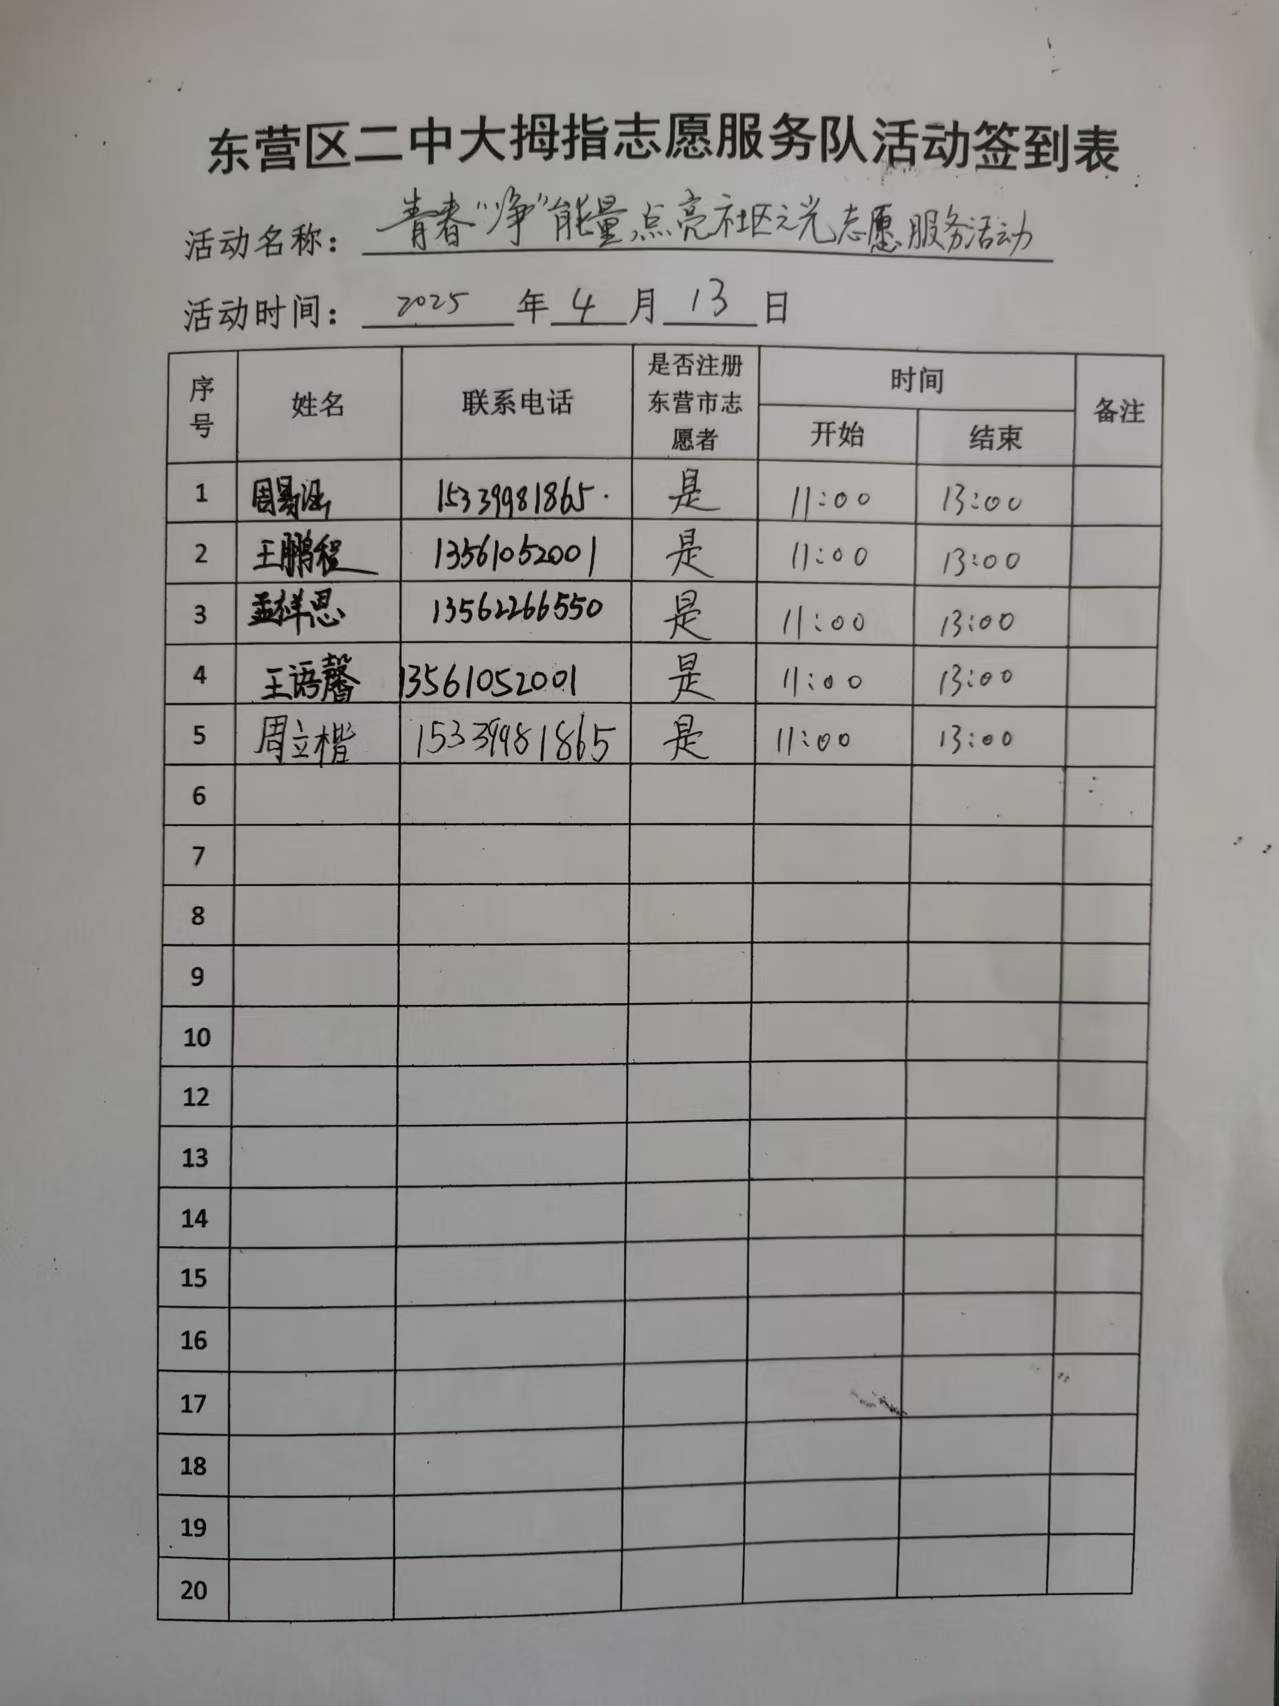 东营区二中大拇指志愿服务队活动签到表
活动名称：青春“净”能量,点亮社区之光志愿服务活动
活动时间：2025 年 4 月 13 日
序号 姓名 联系电话 是否注册东营市志愿者 时间 备注
开始 结束
1 周易涵 15339981865. 是 11:00 13:00
2 王鹏程 13561052001 是 11:00 13:00
3 孟祥恩 13562266550 是 11:00 13:00
4 王语馨 13561052001 是 11:00 13:00
5 周立楷 15339981865 是 11:00 13:00
6
7
8
9
10
12
13
14
15
16
17
18
19
20